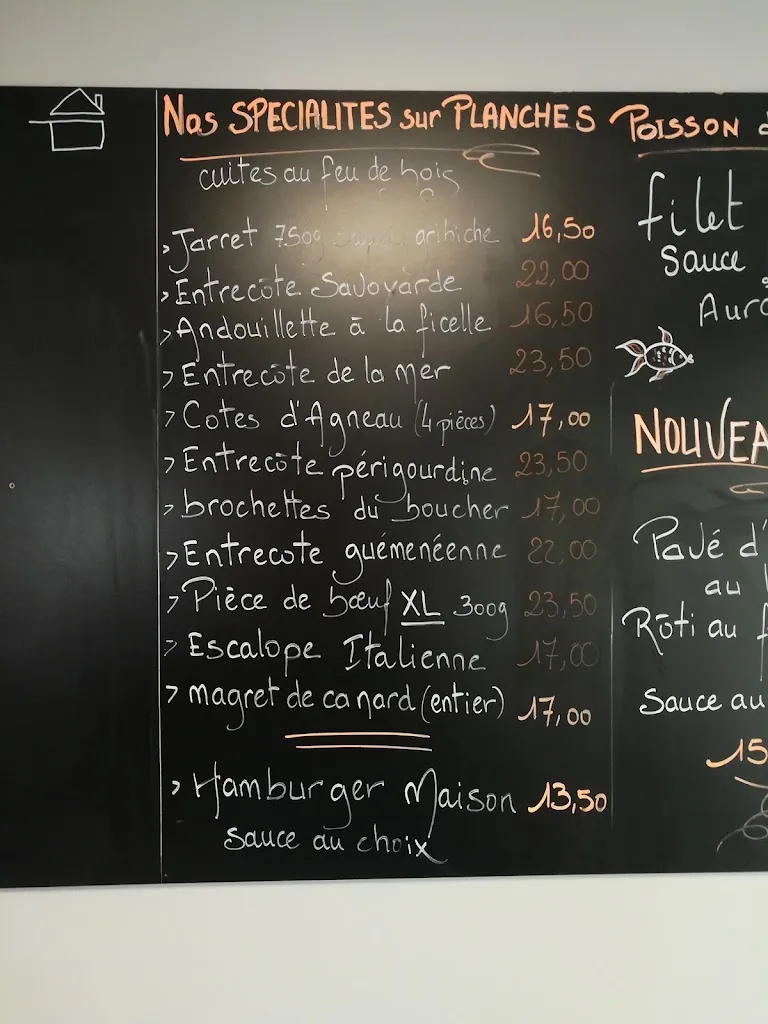 Nos SPECIALITES sur PLANCHES
cuites au feu de bois
> Jarret 750g sauce gribiche 16,50
> Entrecôte Savoyarde 22,00
> Andouillette à la ficelle 16,50
> Entrecôte de la mer 23,50
> Cotes d'Agneau (4 pièces) 17,00
> Entrecôte périgourdine 23,50
> brochettes du boucher 17,00
> Entrecote guémenéenne 22,00
> Pièce de bœuf XL 300g 23,50
> Escalope Italienne 17,00
> magret de canard (entier) 17,00
> Hamburger Maison 13,50
sauce au choix
POISSON
filet
Sauce
NOUVEA
Pavé d'
au
Rôti au f
Sauce au
15